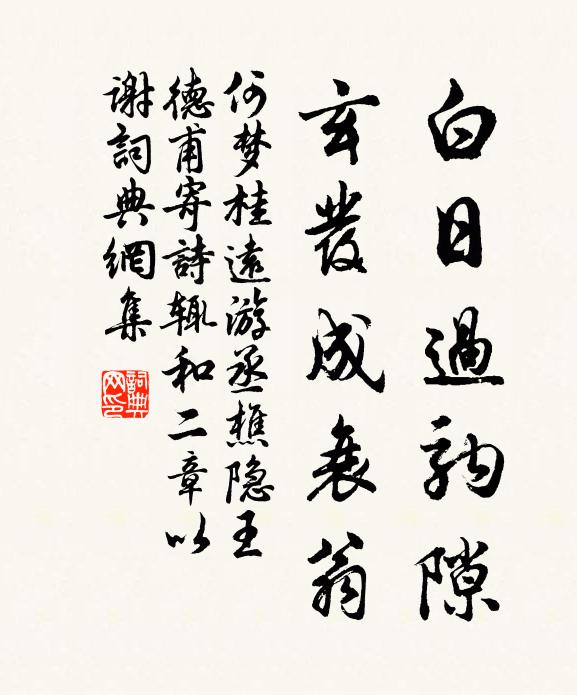 白日過駒隙
玄發成衰翁
何梦桂遠游丞樵隐王
德甫寄詩輒和二章以
謝詞典網集
詞典
网印